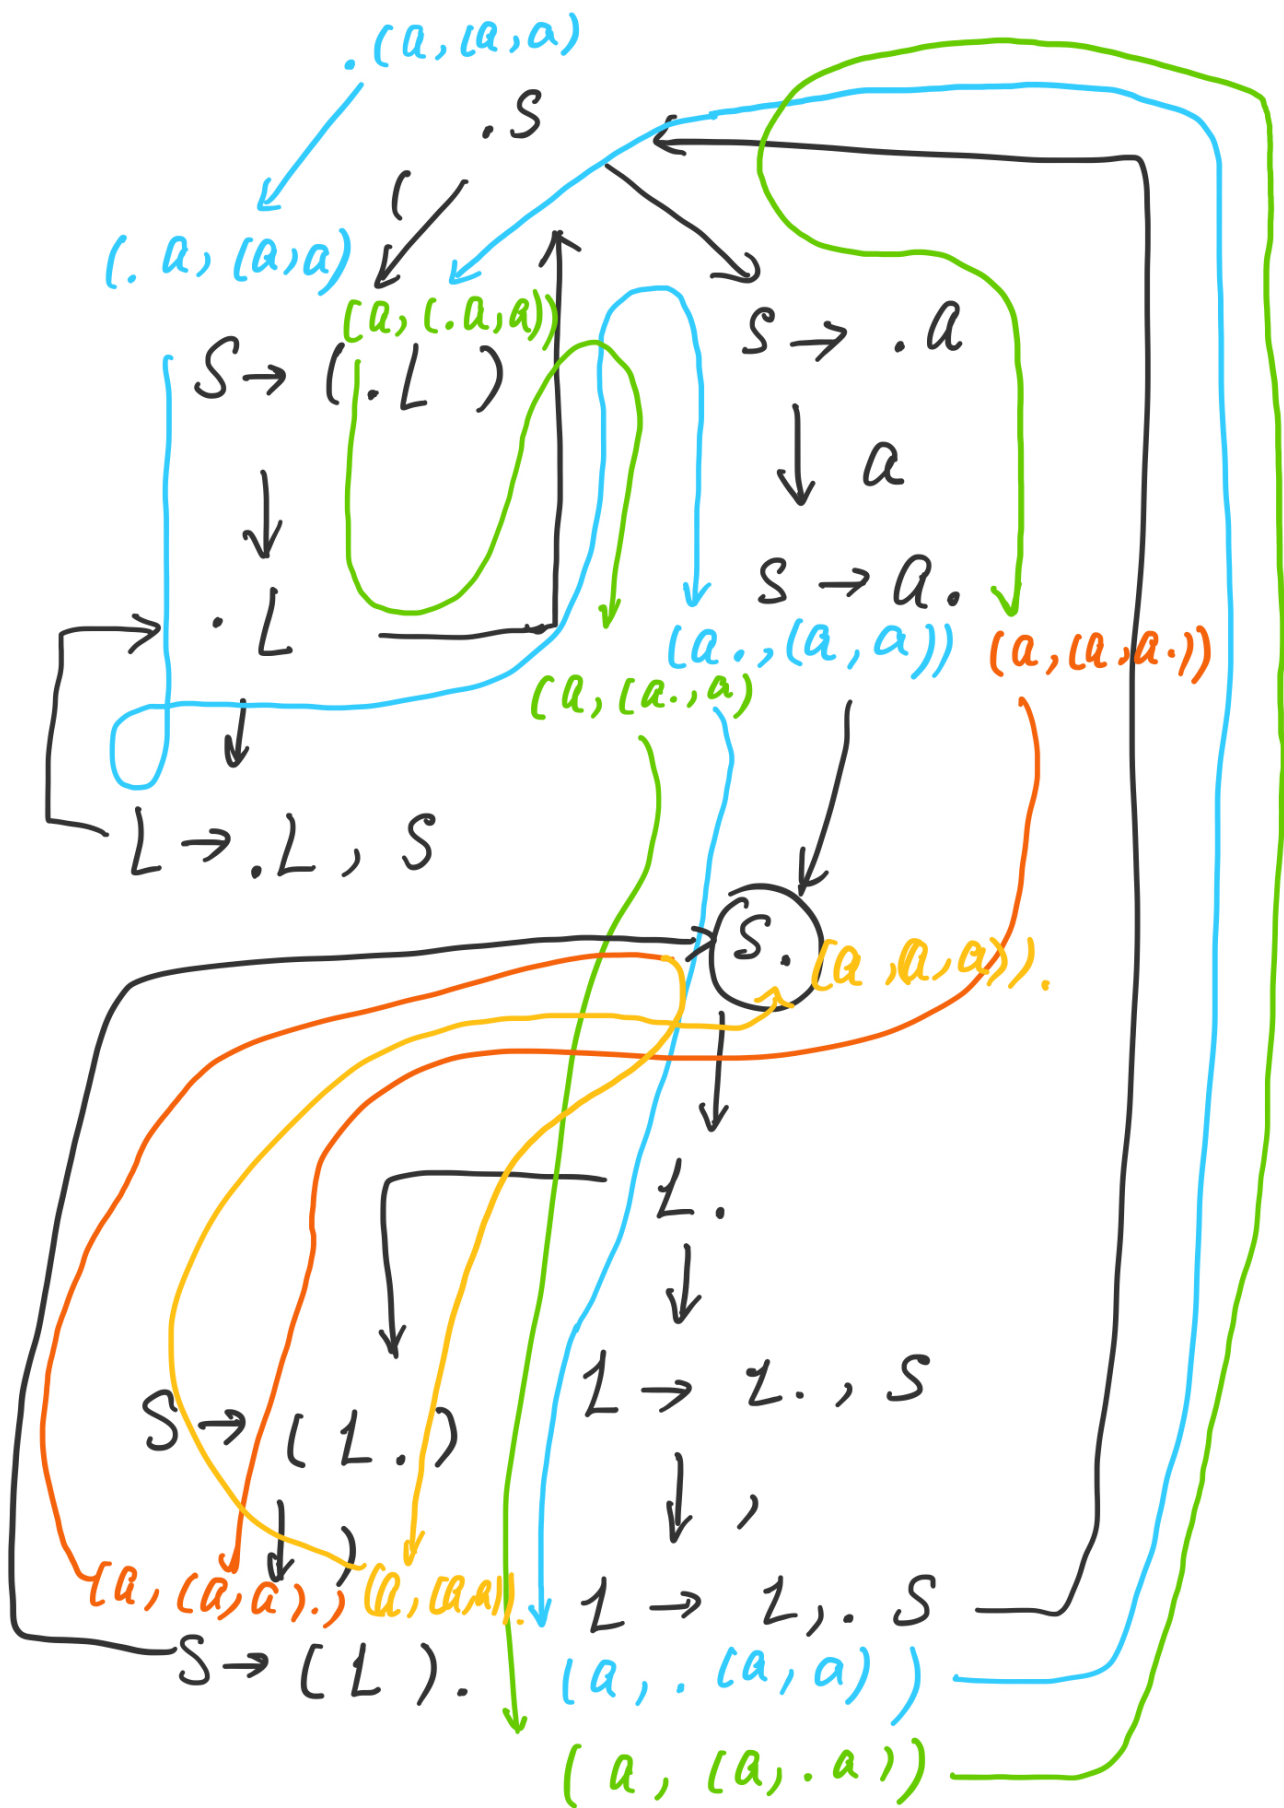 .(a,(a,a)
.S
(
(.a,(a,a)
(a,(.a,a))
S→(.L)
S→.a
a
.L
S→a.
(a.,(a,a))
(a,(a,a.))
(a,(a.,a)
L→.L,S
S.
(a,a,a)).
L.
L→L.,S
S→(L.)
,
)
(a,(a,a).)
(a,(a,a)).
L→L,.S
S→(L).
(a,.(a,a))
(a,(a,.a))